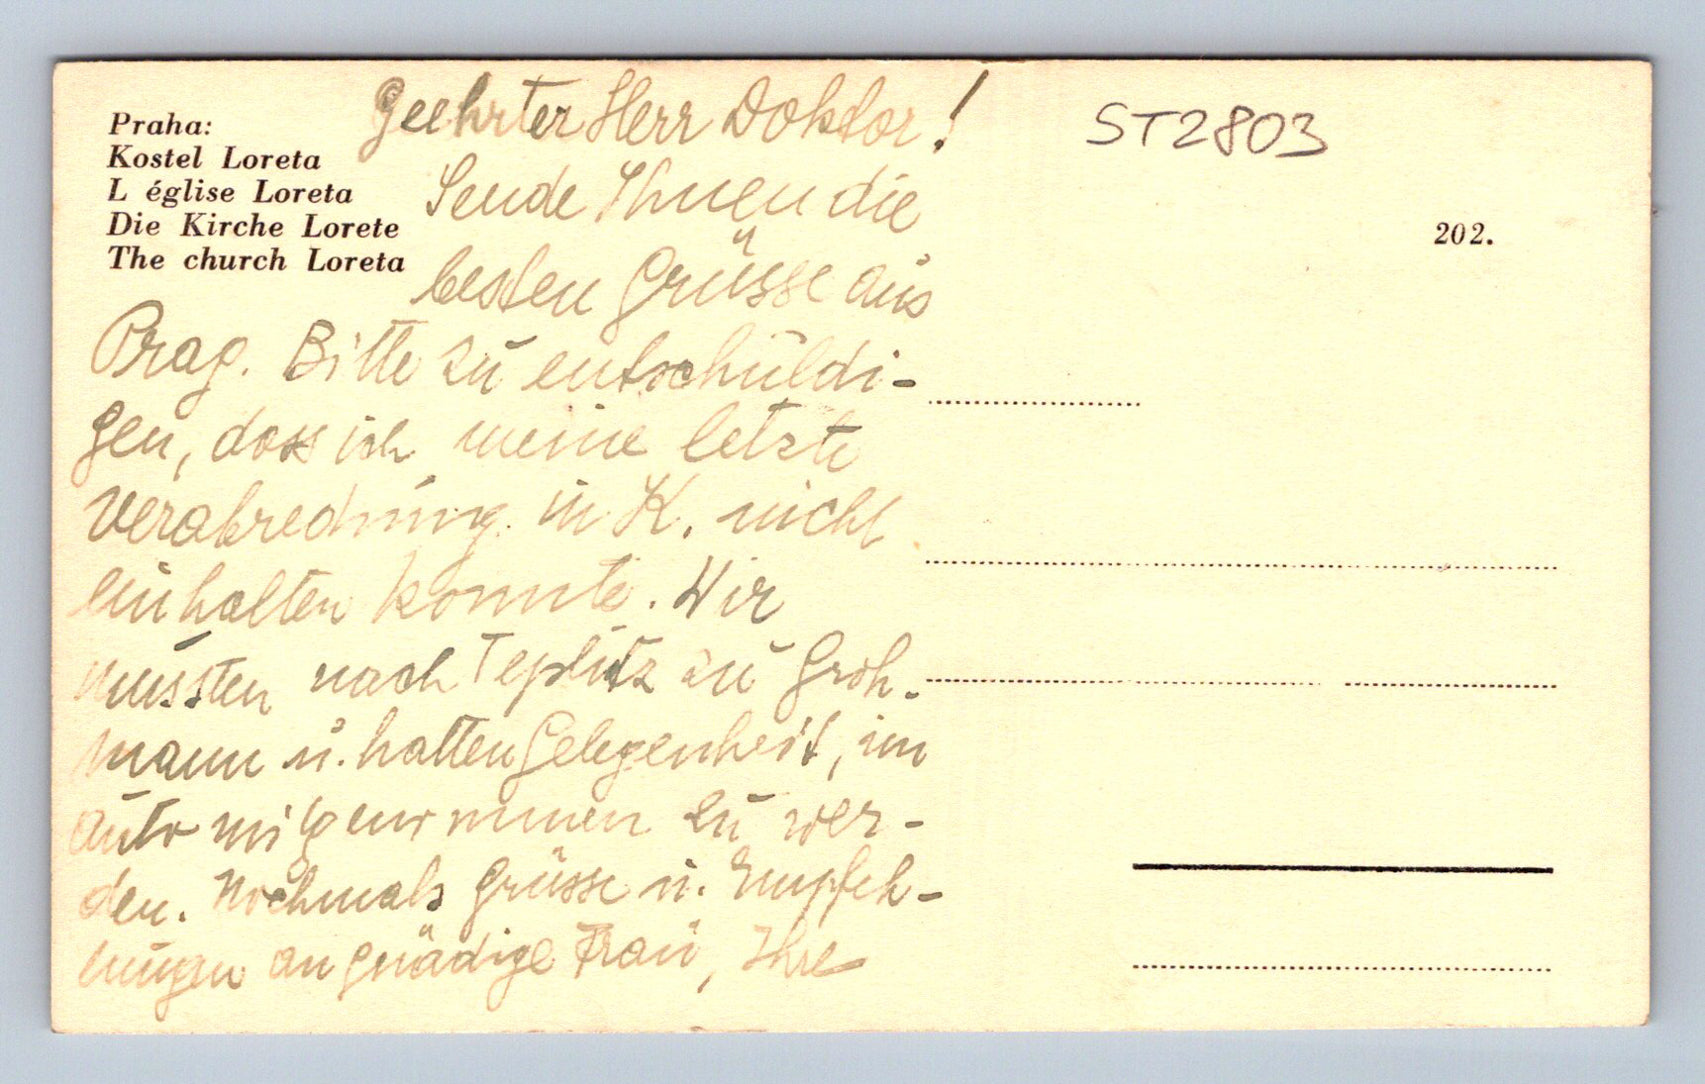 Praha:
Kostel Loreta
L église Loreta
Die Kirche Lorete
The church Loreta
Geehrter Herr Doktor!
Sende Ihnen die
besten Grüsse aus
Prag. Bitte zu entschuldi-
gen, dass ich meine letzte
Verabredung in K. nicht
einhalten konnte. Wir
mussten nach Teplitz zu Groh-
mann u. hatten Gelegenheit, im
Auto mitgenommen zu wer-
den. Nochmals Grüsse u. Empfeh-
lungen an gnädige Frau, Ihre
ST2803
202.